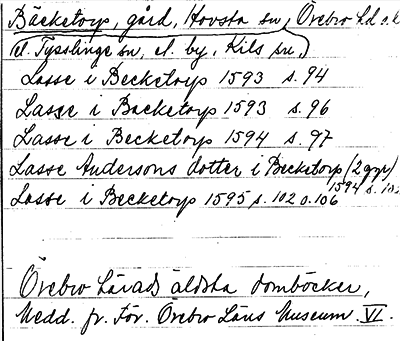 Bäcketorp, gård, Hovsta sn, Örebro hd o. k.
(el. Tysslinge sn, el. by, Kils sn.)
Lasse i Becketorp 1593 s. 94
Lasse i Backetorp 1593 s. 96
Lasse i Becketorp 1594 s. 97
Lasse Andersons dotter i Becketorp (2 ggr)
1594 s. 102
Lasse i Becketorp 1595 s. 102 o. 106
Örebro härads äldsta domböcker,
Medd. fr. För. Örebro Läns Museum. VI.